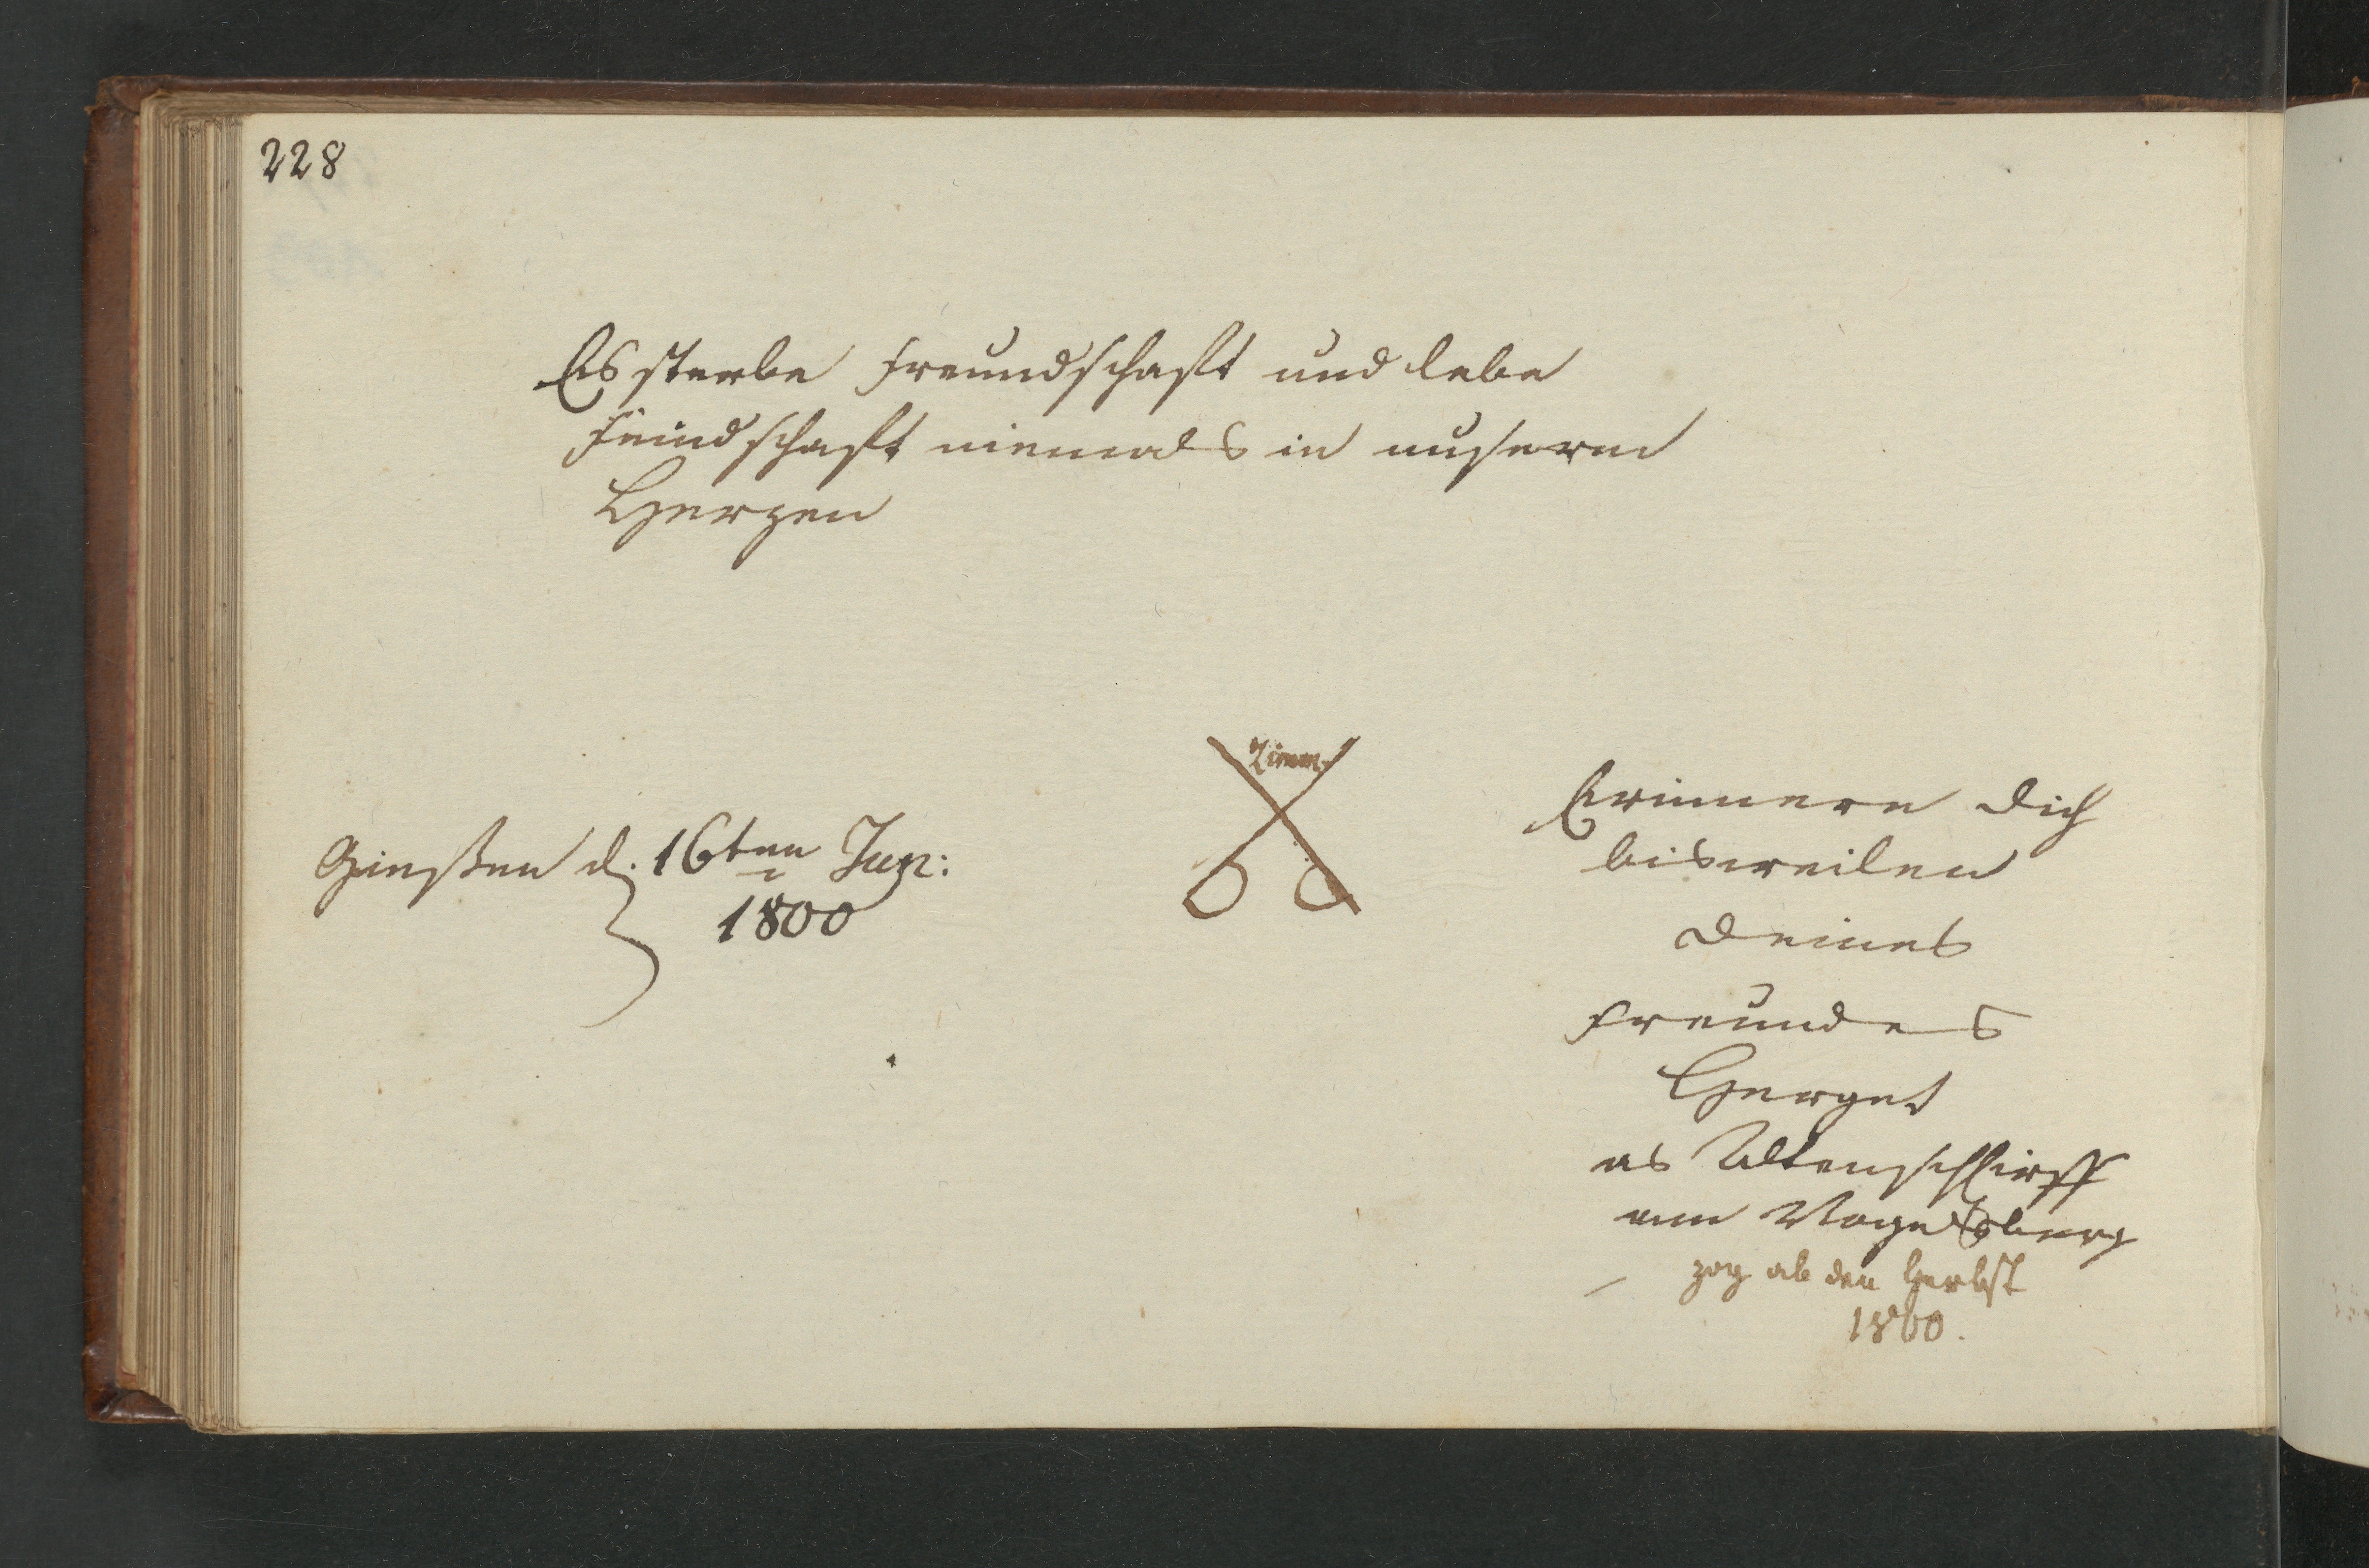 228
Es sterbe Freundschaft und lebe
Feindschaft niemals in unserm
Herzen
Giesßen d. 16ten Jun:
1800
Erinnere dich
bisweilen
deines
Freundes
Herget
as Altenschlirff
am Vogelsberg
zog ab den Herbst
1800.